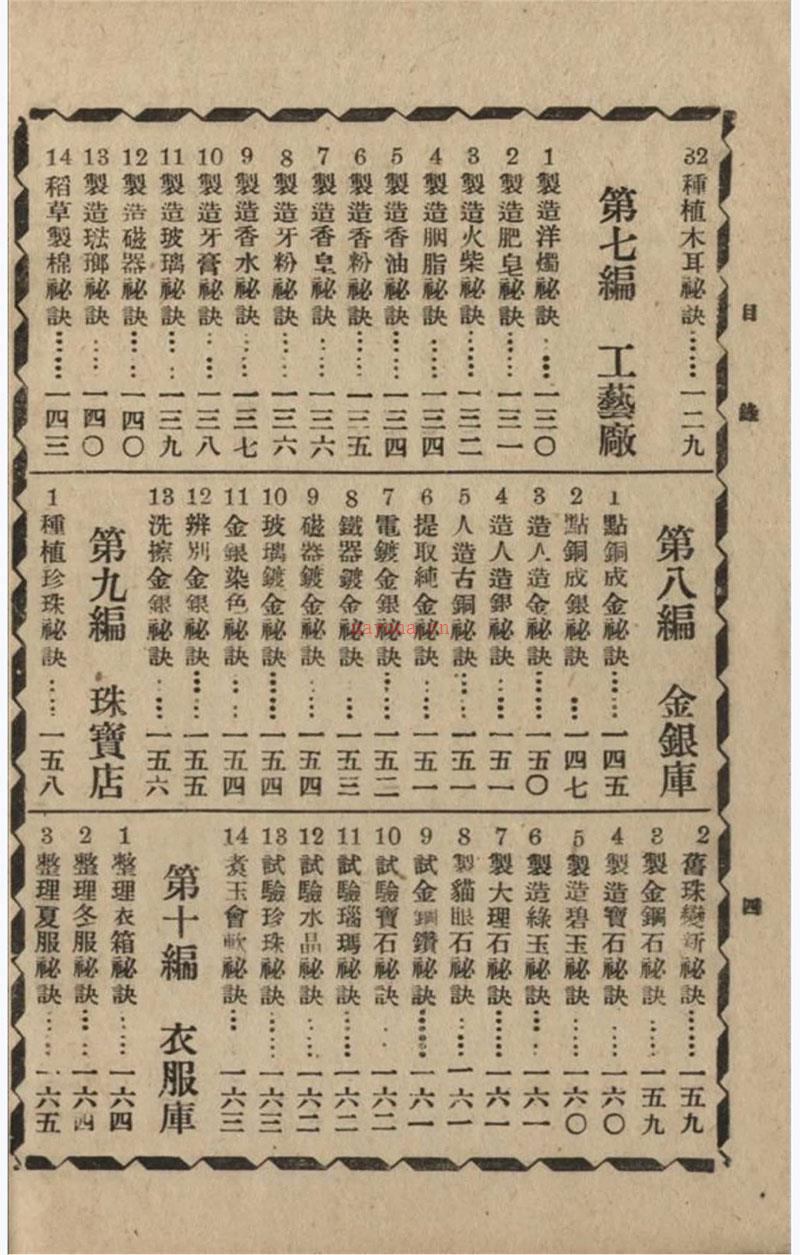 目錄
32種植木耳祕訣……一二九
第七編 工藝廠
1製造洋燭祕訣……一三〇
2製造肥皂祕訣……一三一
3製造火柴祕訣……一三二
4製造胭脂祕訣……一三四
5製造香油祕訣……一三四
6製造香粉祕訣……一三五
7製造香皇祕訣……一三六
8製造牙粉祕訣……一三六
9製造香水祕訣……一三七
10製造牙膏祕訣……一三八
11製造玻璃祕訣……一三九
12製造磁器祕訣……一四〇
13製造琺瑯祕訣……一四〇
14稻草製棉祕訣……一四三
第八編 金銀庫
1點銅成金祕訣……一四五
2點銅成銀祕訣……一四七
3造人造金祕訣……一五〇
4造人造銀祕訣……一五一
5人造古銅祕訣……一五一
6提取純金祕訣……一五一
7電鍍金銀祕訣……一五二
8鐵器鍍金祕訣……一五三
9磁器鍍金祕訣……一五四
10玻璃鍍金祕訣……一五四
11金銀染色祕訣……一五四
12辨別金銀祕訣……一五五
13洗擦金銀祕訣……一五六
第九編 珠寶店
1種植珍珠祕訣……一五八
2舊珠變新祕訣……一五九
3製金鋼石祕訣……一五九
4製造寶石祕訣……一六〇
5製造碧玉祕訣……一六〇
6製造綠玉祕訣……一六一
7製大理石祕訣……一六一
8製貓眼石祕訣……一六一
9試金鋼鑽祕訣……一六一
10試驗寶石祕訣……一六二
11試驗瑙瑪祕訣……一六二
12試驗水晶祕訣……一六二
13試驗珍珠祕訣……一六三
14煑玉會軟祕訣……一六三
第十編 衣服庫
1整理衣箱祕訣……一六四
2整理冬服祕訣……一六四
3整理夏服祕訣……一六五
四